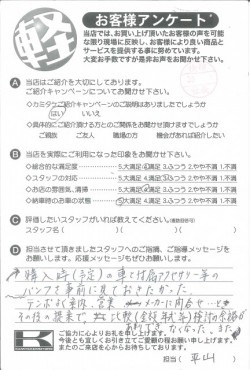 軽
お客様アンケート
当店では、お買い上げ頂いたお客様の声を可能
な限り現場に反映し、お客様により良い商品と
サービスを提供する事に努めています。
大変お手数ですが是非お声をお聞かせ下さい。
A 当店はご紹介を大切にしております。
ご紹介キャンペーンについてお聞かせ下さい。
◇カミタケご紹介キャンペーンのご説明はありましたでしょうか
はい いいえ
◇具体的にご紹介頂ける方とのご関係をお聞かせ頂けますでしょうか
ご親族 ご友人 職場の方 機会があれば紹介したい
B 当店を実際にご利用になった印象をお聞かせ下さい。
◇総合的な満足度 5.大満足 4.満足 3.ふつう 2.やや不満 1.不満
◇スタッフの対応 5.大満足 4.満足 3.ふつう 2.やや不満 1.不満
◇お店の雰囲気、清掃 5.大満足 4.満足 3.ふつう 2.やや不満 1.不満
◇納車時のお車の状態 5.大満足 4.満足 3.ふつう 2.やや不満 1.不満
C 評価したいスタッフがいれば教えてください。(複数回答可)
スタッフ名( )( )( )
D 担当させて頂きましたスタッフへのご指摘、ご指導メッセージを
お願いします。応援メッセージもぜひお聞かせ下さい。
購入時(予定)の車と付属アクセサリー等の
パンフを事前に見ておきたかった。
テンポよく案内、営業
メーカーに問合せ
その後の提案で、比較(金額、年式等)検討の余裕が
なくなった。また、
K
ご協力に心よりお礼を申し上げます。
今後とも宜しくお引き立てご愛顧の程お願い申し上げます。
またのご来店を心からお待ちしております。
担当( 平山 )